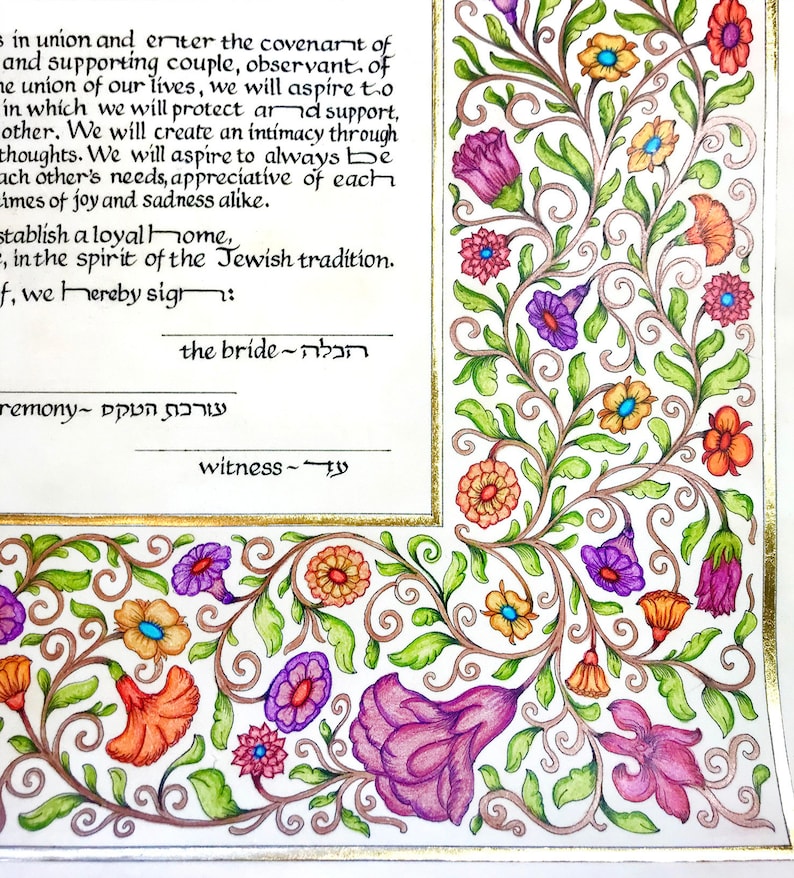 s in union and enter the covenant of
and supporting couple, observant of
he union of our lives, we will aspire to
in which we will protect and support,
other. We will create an intimacy through
thoughts. We will aspire to always be
ach other's needs, appreciative of each
times of joy and sadness alike.
stablish a loyal home,
e, in the spirit of the Jewish tradition.
f, we hereby sign:
the bride~הכלה
remony~ עורכת הטקס
witness~עד